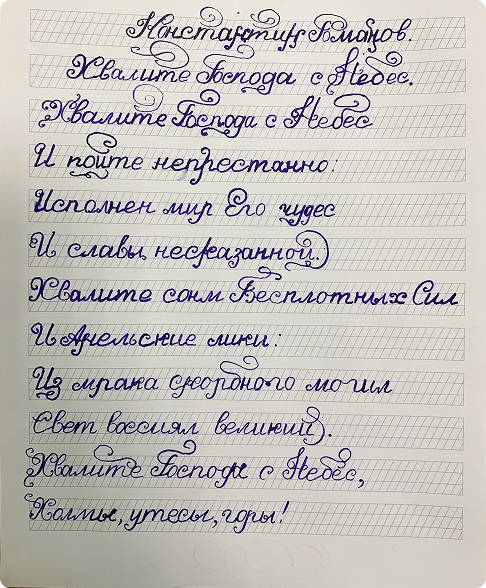 Константин Романов.
Хвалите Господа с Небес.
Хвалите Господа с Небес
И пойте непрестанно:
Исполнен мир Его чудес
И славы несказанной.
Хвалите сонм Бесплотных Сил
И Ангельские лики:
Из мрака скорбного могил
Свет воссиял великий.
Хвалите Господа с Небес,
Холмы, утесы, горы!